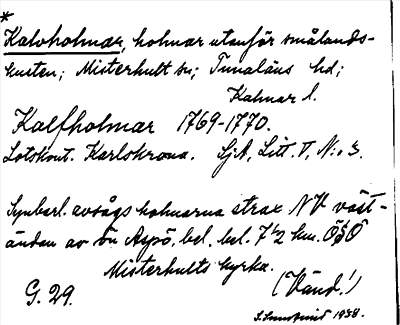 *
Kalvholmar, holmar utanför smålands-
kusten; Misterhult sn; Tunaläns hd;
Kalmar l.
Kalfholmar 1769-1770.
Lotskont. Karlskrona. SjA, Litt. V, N:o 3.
Synbarl. avsågs holmarna strax NV väst-
ändan av ön Aspö, bel. bel. 7 1/2 km. ÖSÖ
Misterhults kyrka.
G. 29.
(Vänd!)
1938.